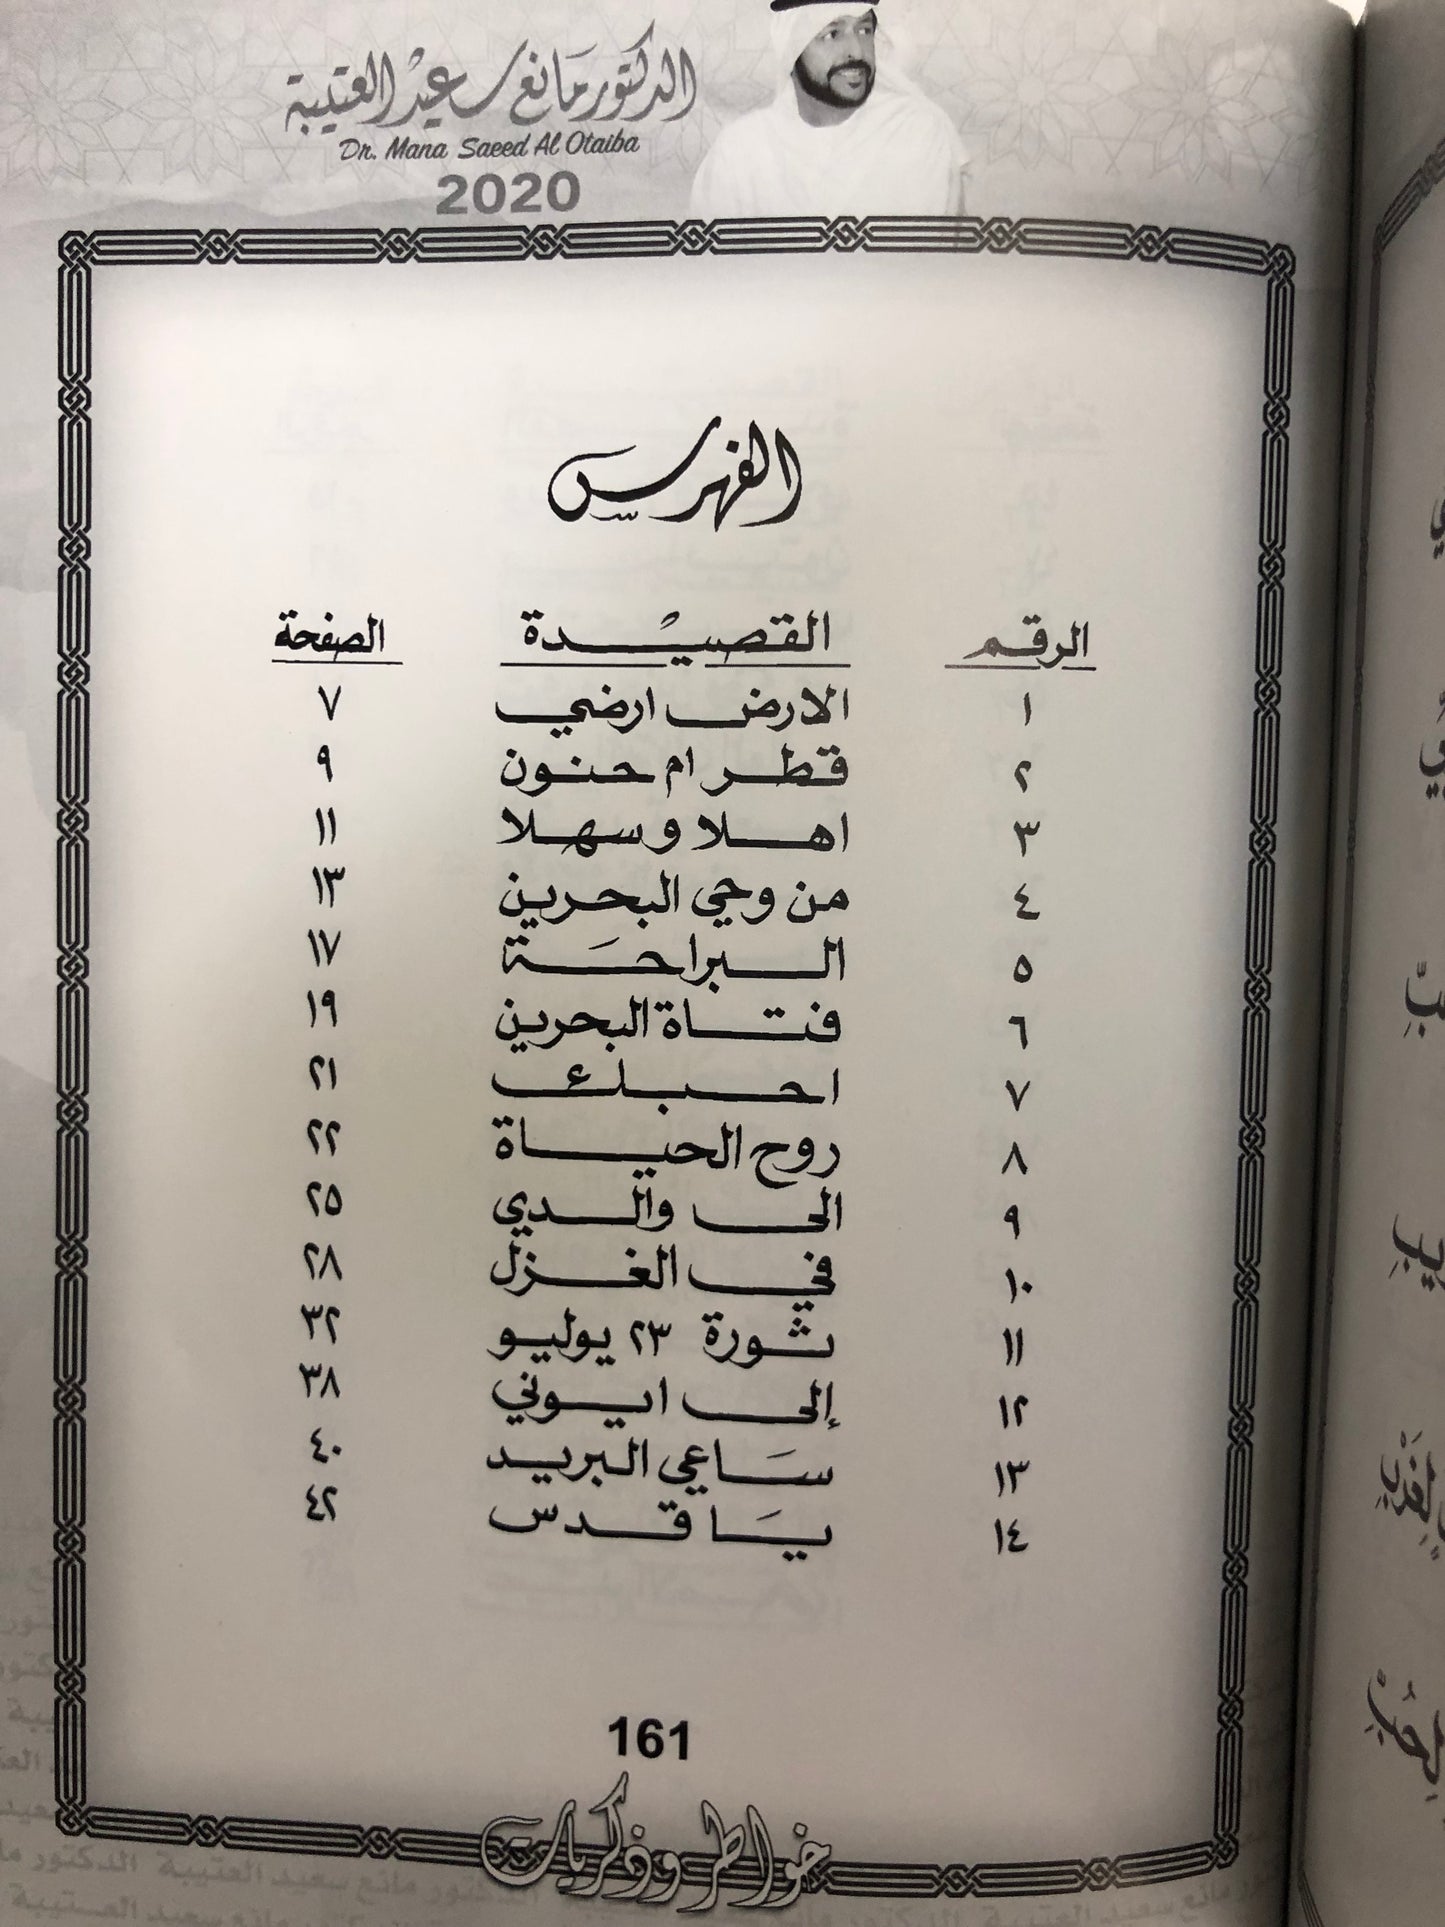 الدكتور مانع سعيد العتيبة
Dr. Mana Saeed Al Otaiba
2020
الفهرس
الرقم القصيدة الصفحة
١ الارض ارضي ٧
٢ قطر ام حنون ٩
٣ اهلا وسهلا ١١
٤ من وحي البحرين ١٣
٥ البراحة ١٧
٦ فتاة البحرين ١٩
٧ احبك ٢١
٨ روح الحياة ٢٢
٩ الى والدي ٢٥
١٠ في الغزل ٢٨
١١ ثورة ٢٣ يوليو ٣٢
١٢ إلى ايوني ٣٨
١٣ ساعي البريد ٤٠
١٤ يا قدس ٤٢
161
خواطر وذكريات